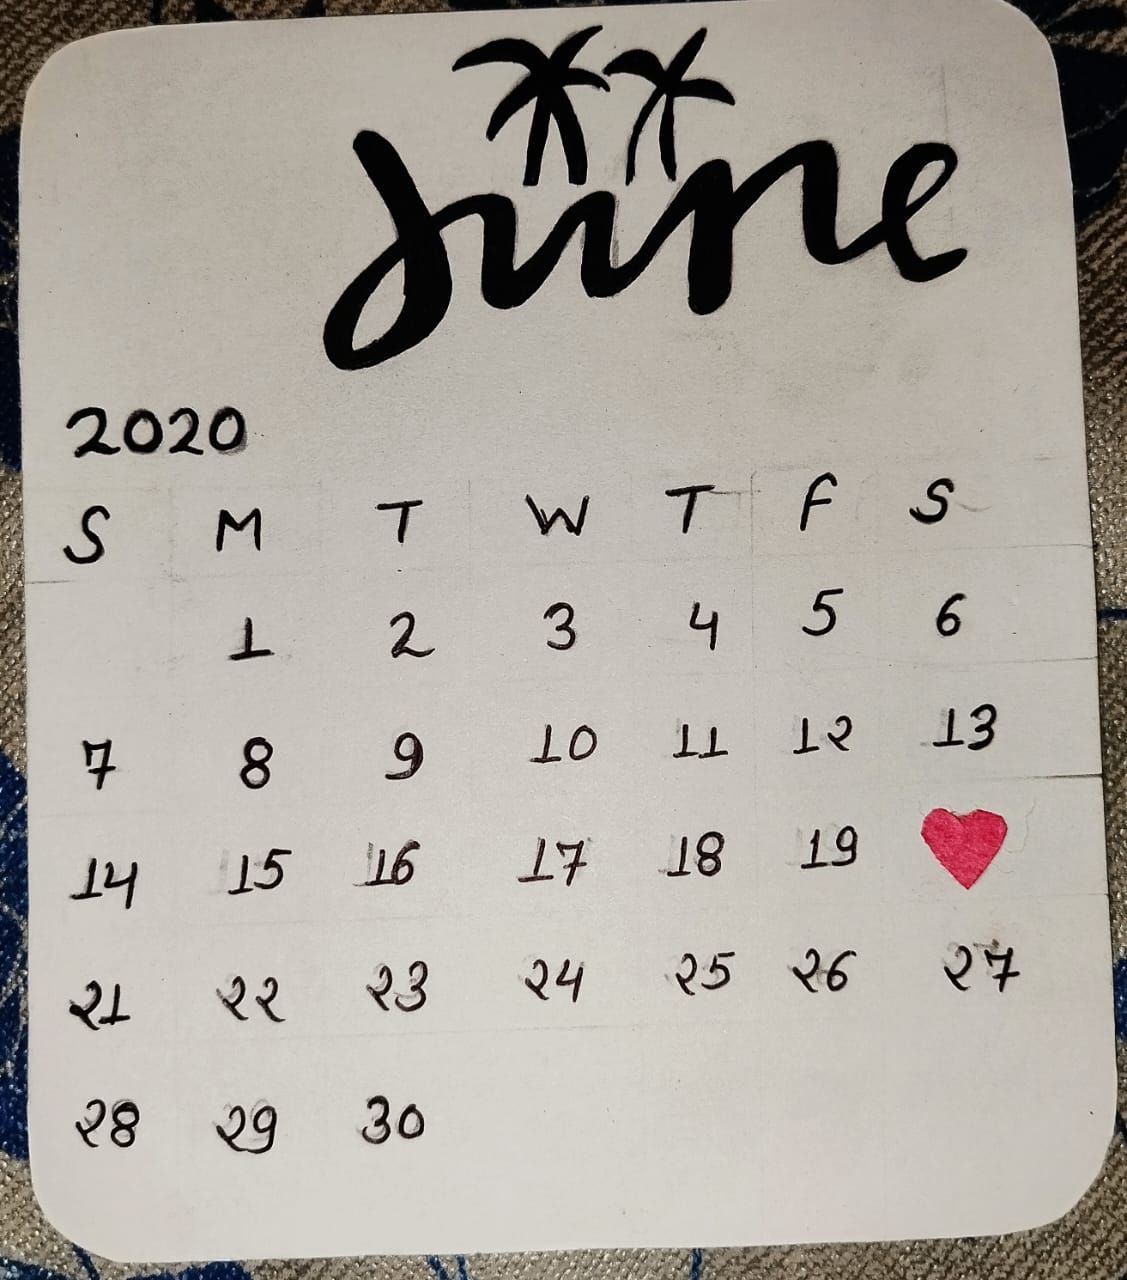 June
2020
S M T W T F S
1 2 3 4 5 6
7 8 9 10 11 12 13
14 15 16 17 18 19
21 22 23 24 25 26 27
28 29 30